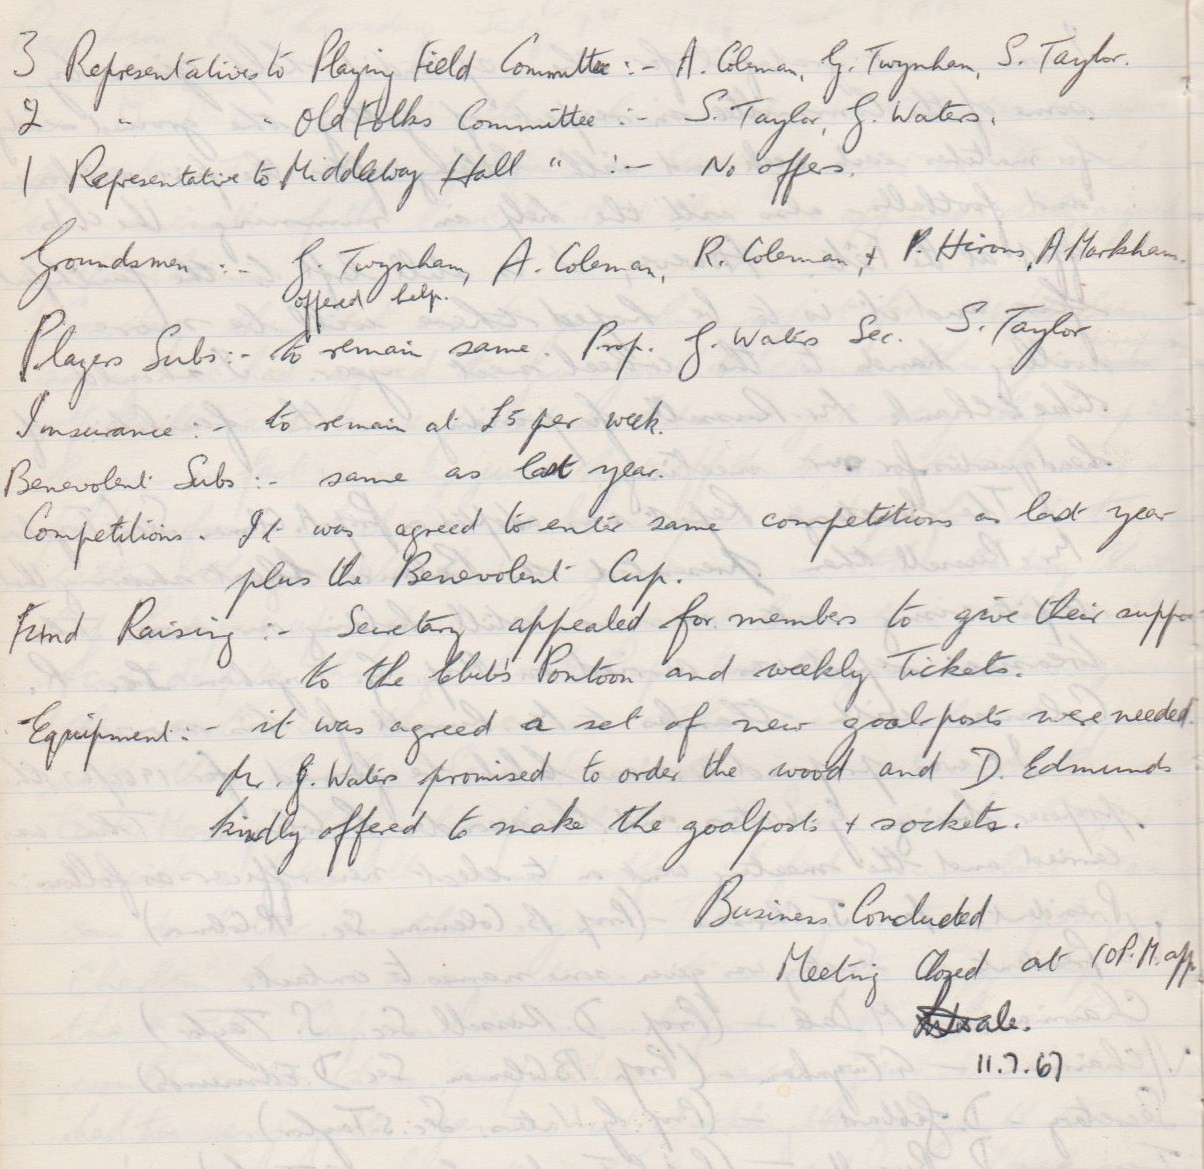 3 Representatives to Playing Field Committee :- A. Coleman, G. Twynham, S. Taylor.
2 " " Old Folks Committee :- S. Taylor, G. Waters.
1 Representative to Middleway Hall " :- No offers.
Groundsmen :- G. Twynham, A. Coleman, R. Coleman, + P. Hirons, A Markham.
offered help.
Players Subs :- to remain same. Prop. G. Waters Sec. S. Taylor
Insurance :- to remain at £5 per week.
Benevolent Subs :- same as last year.
Competitions. It was agreed to enter same competitions as last year
plus the Benevolent Cup.
Fund Raising :- Secretary appealed for members to give their suppo
to the Club's Pontoon and weekly Tickets.
Equipment :- it was agreed a set of new goal-posts were needed.
Mr. G. Waters promised to order the wood and D. Edmunds
kindly offered to make the goalposts + sockets.
Business Concluded
Meeting Closed at 10 P.M. app
11.7.67